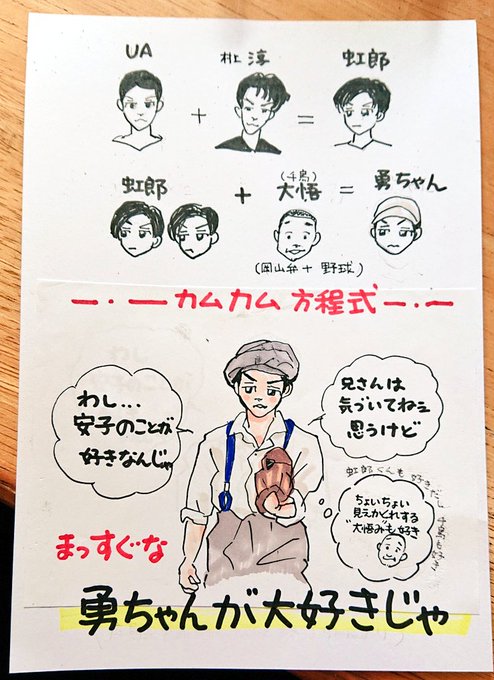 UA
+
村上淳
=
虹郎
虹郎
+
(千鳥)
大悟
=
勇ちゃん
(岡山弁+野球)
カムカム方程式
わし...
安子のことが
好きなんじゃ
兄さんは
気づいてねぇ
思うけど
虹郎くんも好きだし千鳥も好き
ちょいちょい
見えかくれする
"大悟み"も好き
まっすぐな
勇ちゃんが大好きじゃ